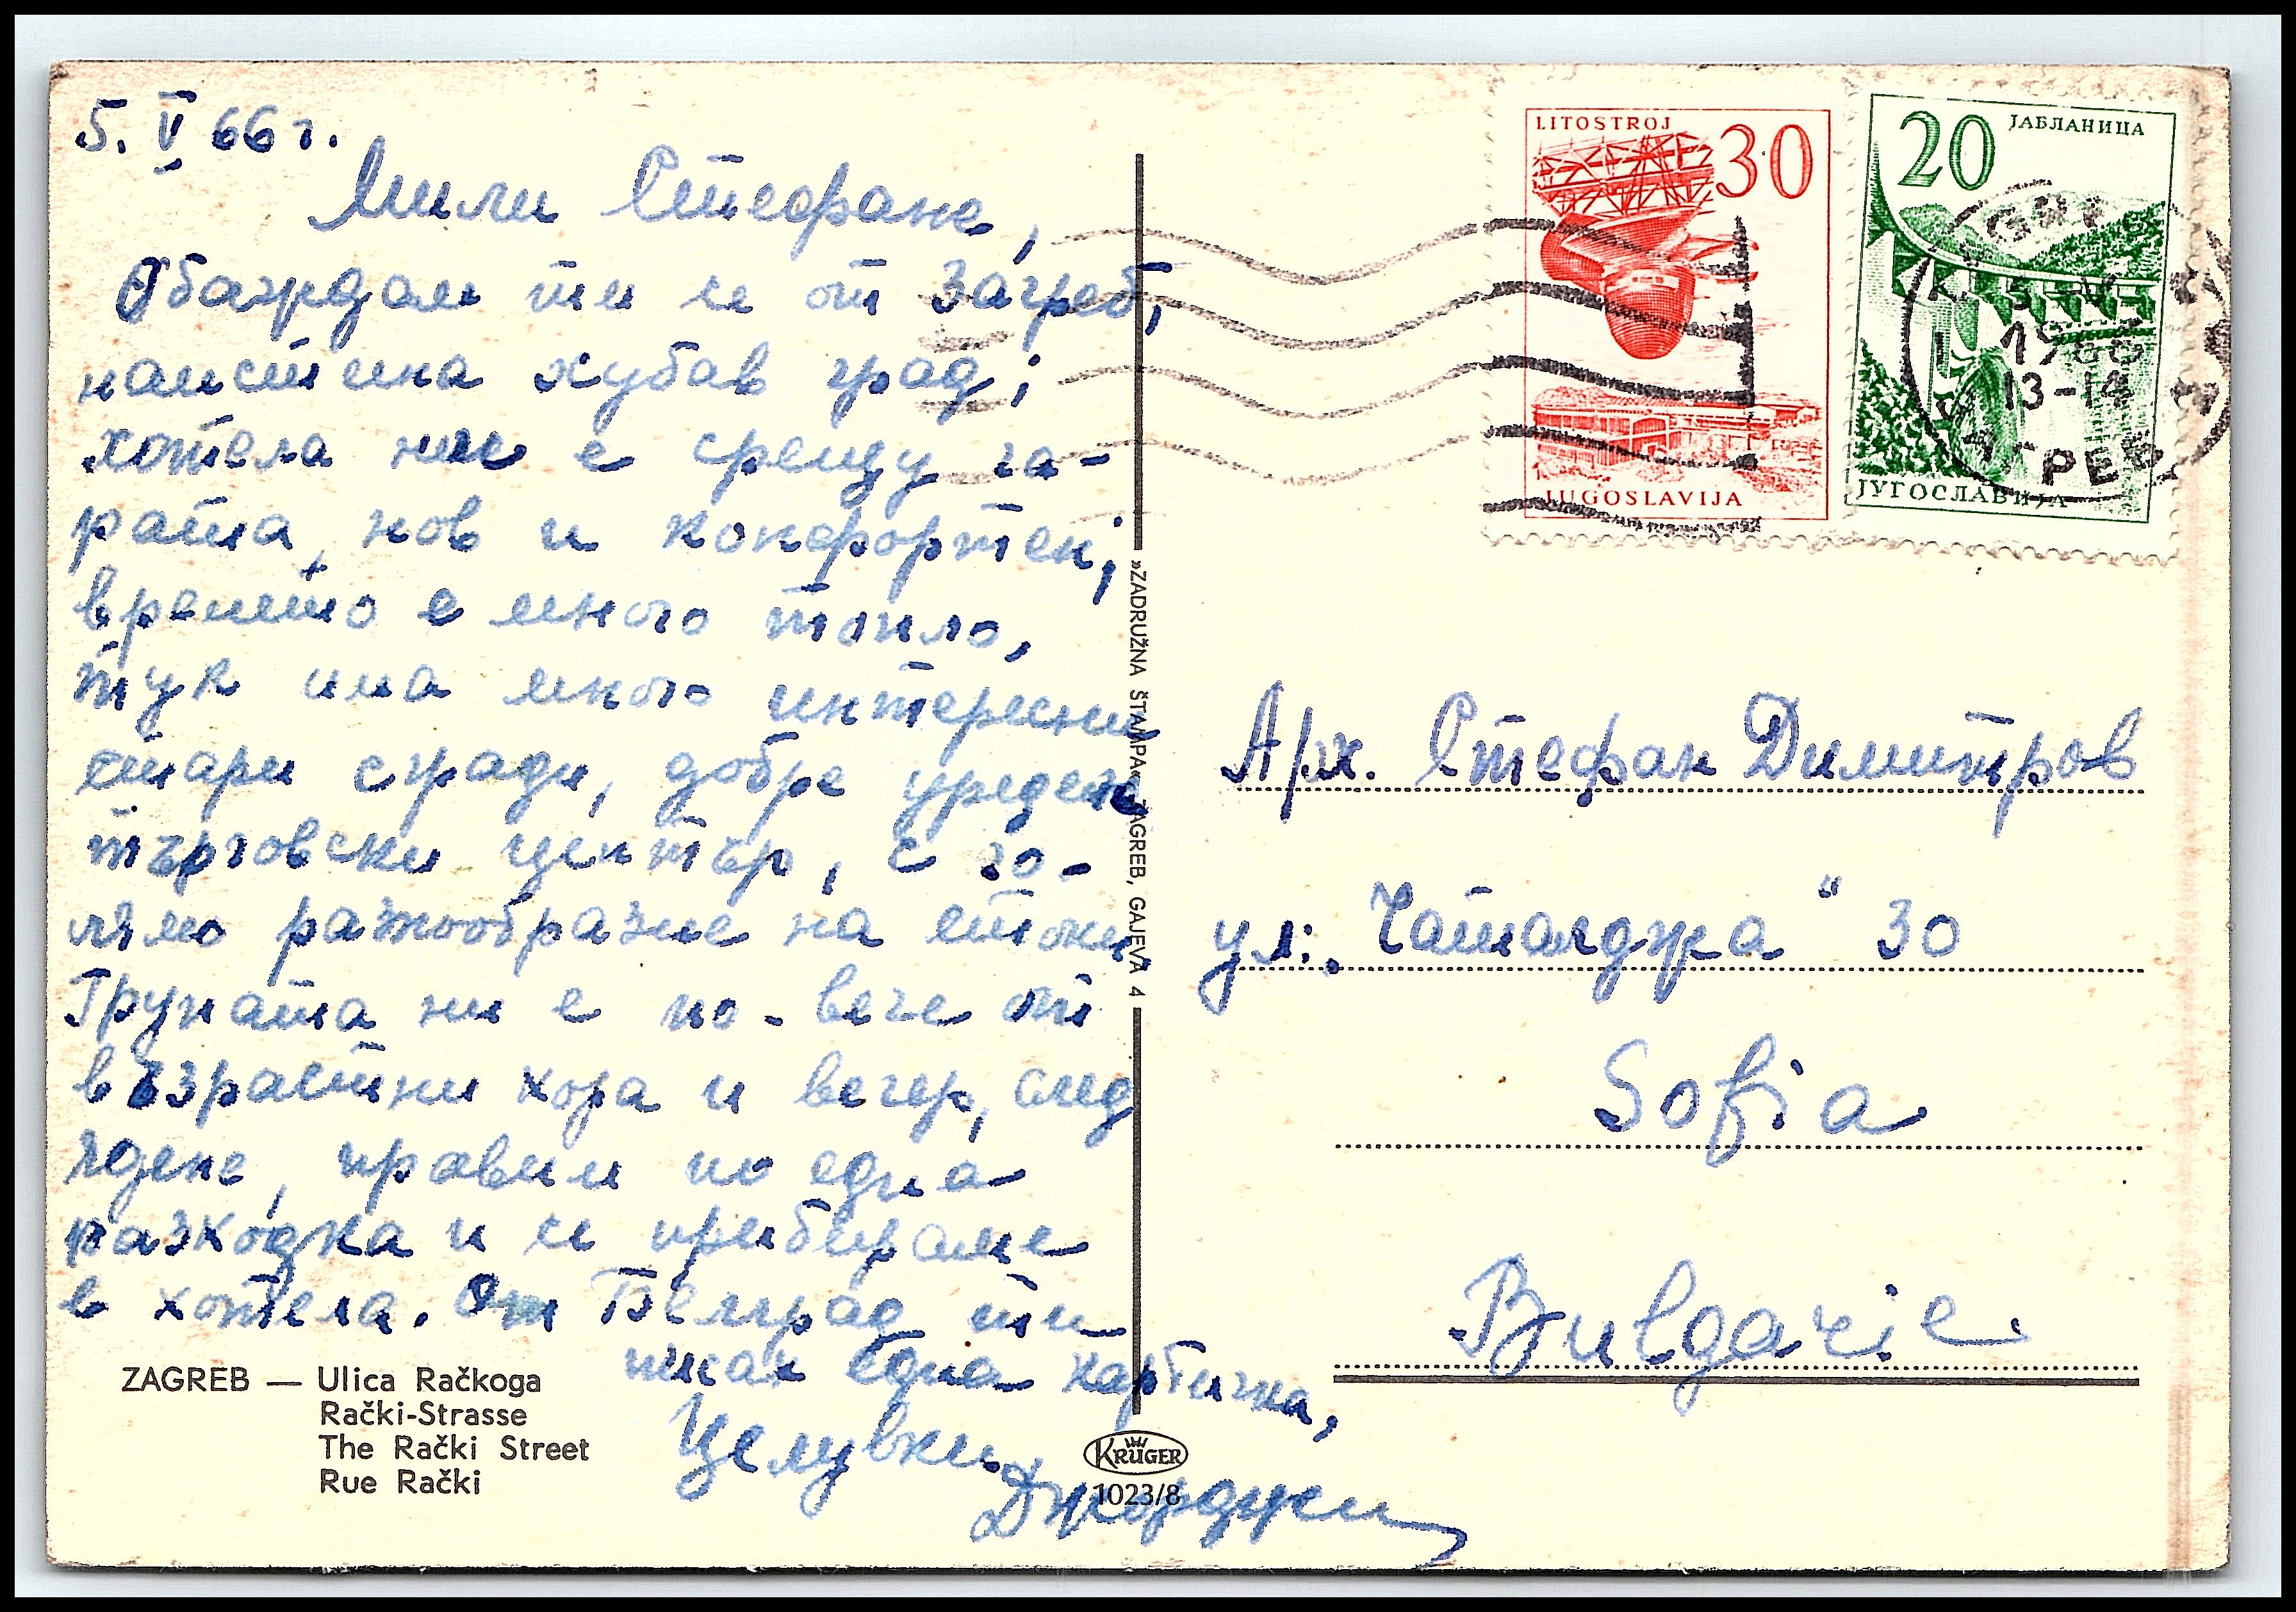 5. V 66 г.
Мили Стефане,
Обаждам ти се от Загреб,
наистина хубав град;
хотела ни е срещу га-
рата, нов и конфортен;
времето е много топло,
тук има много интересни
стари сгради, добре уреден
търговски център, с го-
лямо разнообразие на стоки.
Групата ни е по-вече от
възрастни хора и вечер, след
ядене, правим по една
разходка и се прибираме
в хотела. От Белград ти
писах една картичка,
Целувки
Джорджи
ZAGREB — Ulica Račkoga
Rački-Strasse
The Rački Street
Rue Rački
»ZADRUŽNA ŠTAMPA« ZAGREB, GAJEVA 4
KRÜGER
1023/8
LITOSTROJ
30
JUGOSLAVIJA
20
ЈАБЛАНИЦА
ЈУГОСЛАВИЈА
13-14
Арх. Стефан Димитров
ул. „Чаталджа" 30
Sofia
Bulgarie.